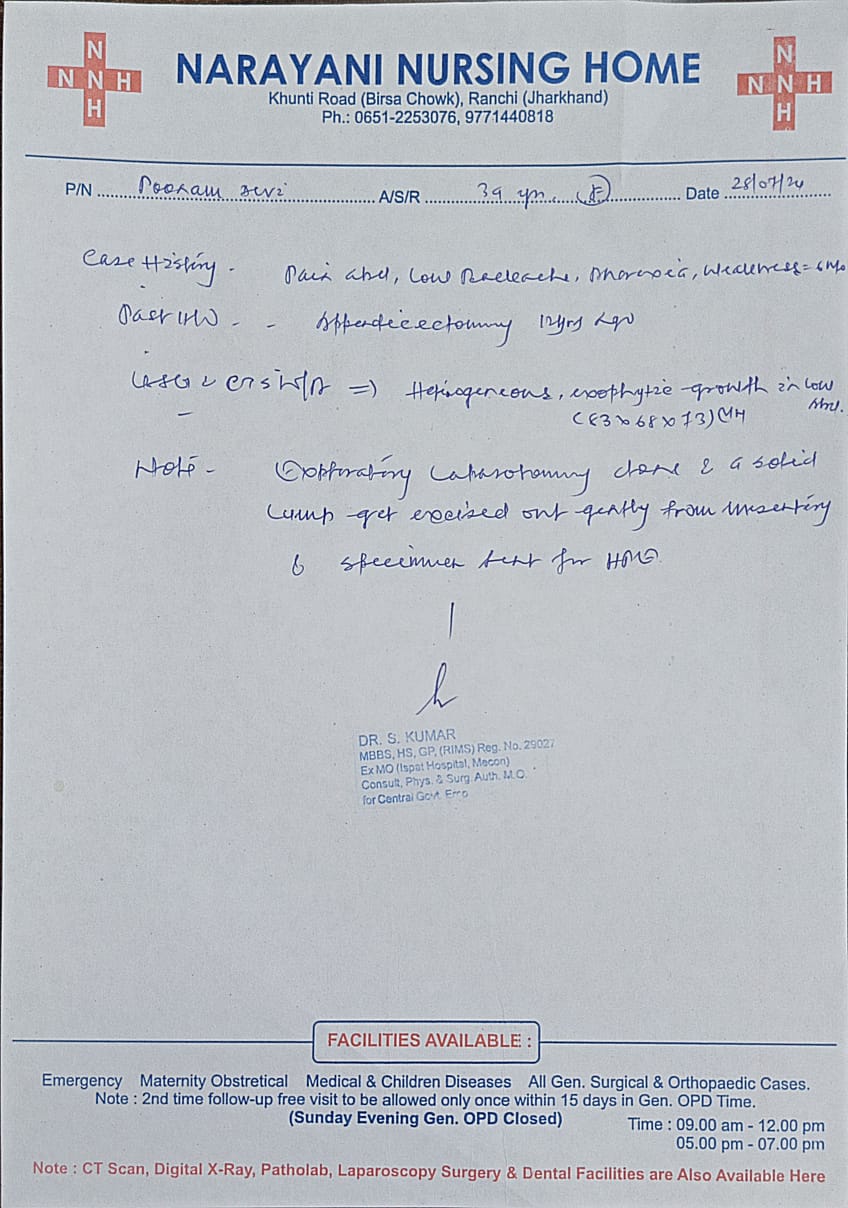 N
N N H
H
NARAYANI NURSING HOME
Khunti Road (Birsa Chowk), Ranchi (Jharkhand)
Ph.: 0651-2253076, 9771440818
N
N N H
H
P/N Poonam Devi A/S/R 39 yrs. F Date 28/07/24
Case History - Pain abd, Low Backache, Anorexia, Weakness = 6 Mo
Past H/O - - Appendicectomy 12yrs ago
USG & CT S W/A => Heterogeneous, exophytic growth in low abd.
(83 x 68 x 73) MM
Note - Exploratory Laparotomy done & a solid
Lump get excised out gently from mesentery
& specimen sent for HPE.
DR. S. KUMAR
MBBS, HS, GP, (RIMS) Reg. No. 29027
Ex MO (Ispat Hospital, Mecon)
Consult, Phys. & Surg. Auth. M.O.
for Central Govt. Emp
FACILITIES AVAILABLE :
Emergency Maternity Obstretical Medical & Children Diseases All Gen. Surgical & Orthopaedic Cases.
Note : 2nd time follow-up free visit to be allowed only once within 15 days in Gen. OPD Time.
(Sunday Evening Gen. OPD Closed) Time : 09.00 am - 12.00 pm
05.00 pm - 07.00 pm
Note : CT Scan, Digital X-Ray, Patholab, Laparoscopy Surgery & Dental Facilities are Also Available Here